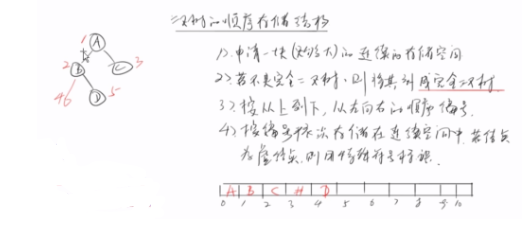 二叉树的顺序存储结构
1). 申请一块(足够大)的连续的存储空间
2). 若不是完全二叉树,则将其补成完全二叉树
3). 按从上到下,从左向右的顺序编号.
4). 按编号依次存储在连续空间中,若结点
为虚结点,则用特殊符号标识.
1 A
2 B C 3
4 D 5
A B C # D
0 1 2 3 4 5 6 7 8 9 10